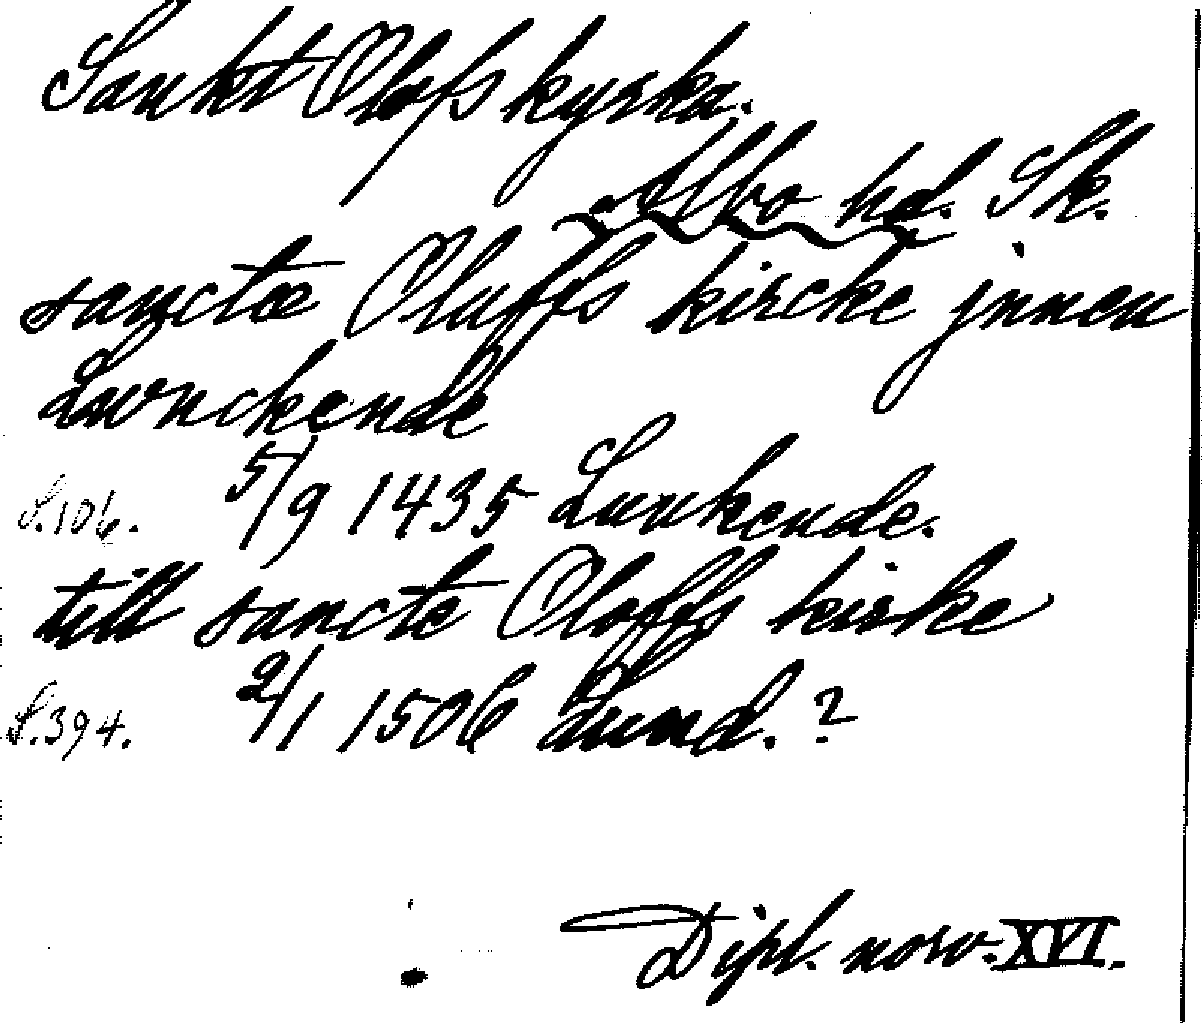 Sankt Olofs kyrka.
Albo hd. Sk.
sancte Oluffs kircke jnnen
Lwnckende
S.106. 5/9 1435 Lunkende.
till sancte Oloffs kirke
S.394. 2/1 1506 Lund.?
Dipl. norv. XVI.